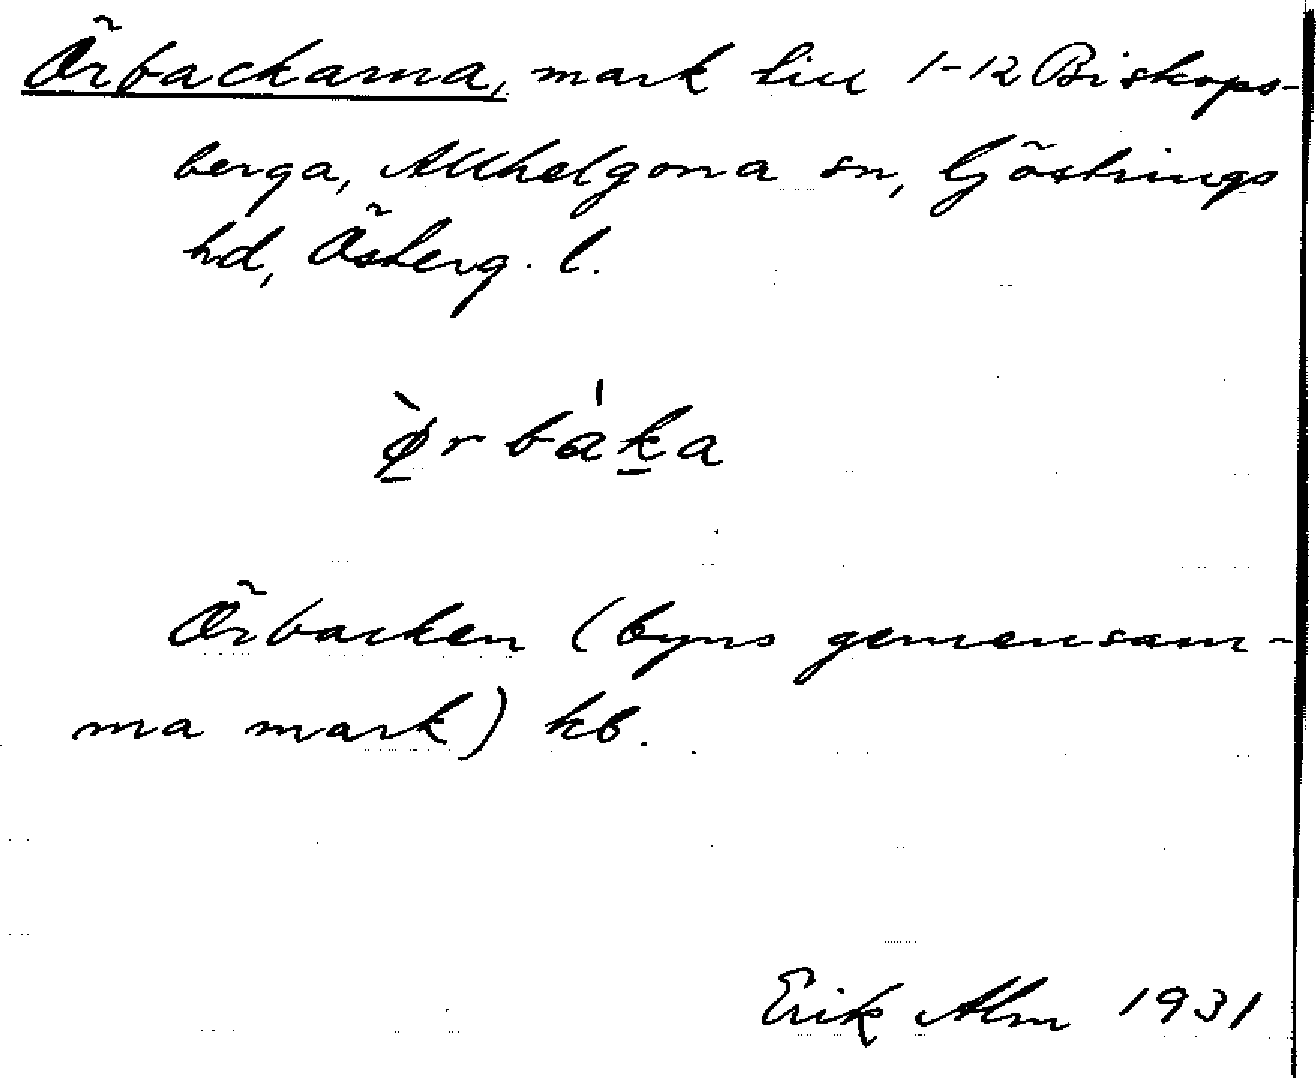 Örbackarna, mark till 1-12 Biskops-
berga, Allhelgona sn, Göstrings
hd, Österg. l.
ø̱̀r bàḵa
Örbacken (byns gemensam-
ma mark) kb.
Erik Alm 1931